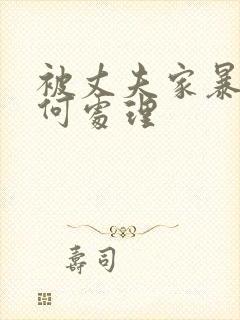 被丈夫家暴
何處理
壽司